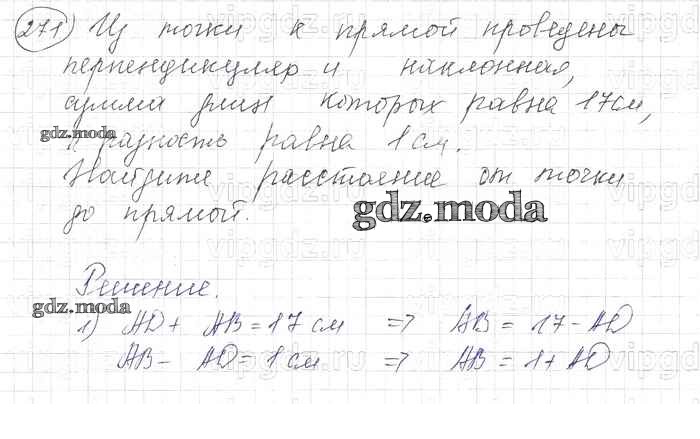 271) Из точки к прямой проведены
перпендикуляр и наклонная,
сумма длин которых равна 17см,
gdz.moda
а разность равна 1см.
Найдите расстояние от точки
до прямой.
gdz.moda
Решение.
gdz.moda
1) AD + AB = 17 см => AB = 17 - AD
AB - AD = 1 см => AB = 1 + AD